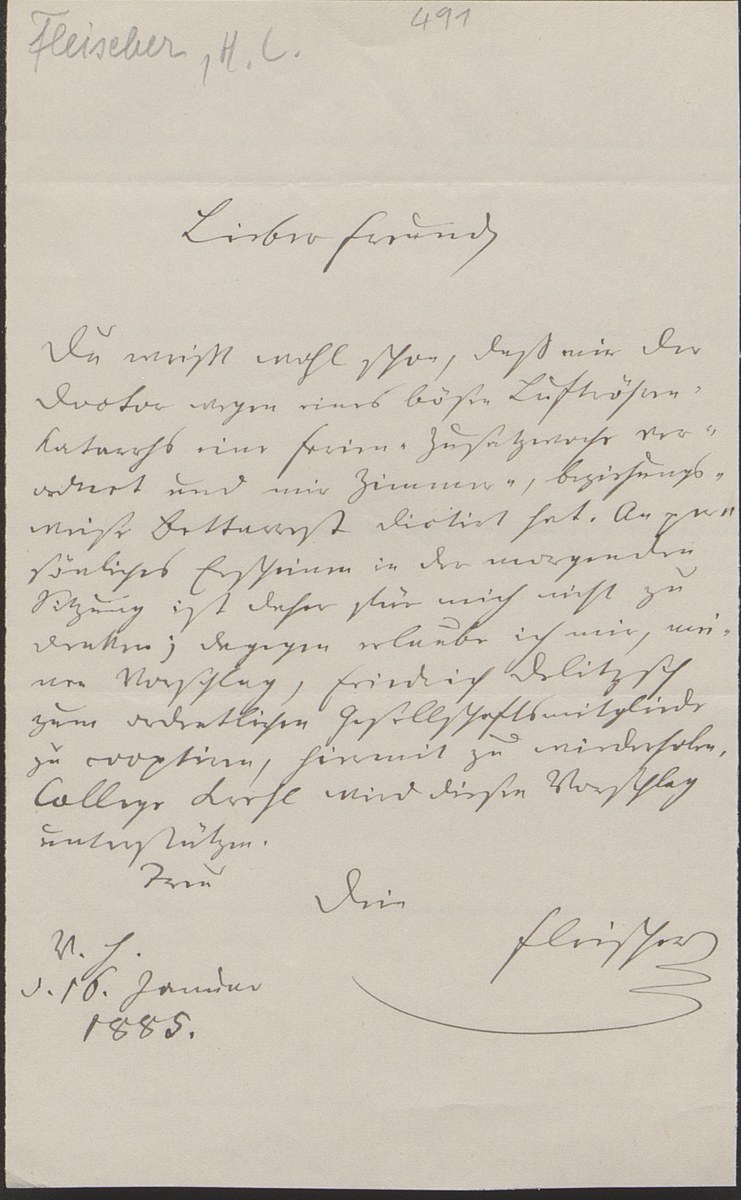 Fleischer, H. L.
491
Lieber Freund
Du weißt wohl schon, daß mir der
Doctor wegen eines bösen Luftröhren-
katarrhs eine Ferien-Zusatzwoche ver-
ordnet und mir Zimmer-, beziehungs-
weise Bettarrest dictirt hat. An per-
sönliches Erscheinen in der morgenden
Sitzung ist daher für mich nicht zu
denken; dagegen erlaube ich mir, mei-
nen Vorschlag, Friedrich Delitzsch
zum ordentlichen Gesellschaftsmitgliede
zu cooptiren, hiermit zu wiederholen.
College Krehl wird diesen Vorschlag
unterstützen.
Treu
Dein
Fleischer
V. H.
d. 16. Januar
1885.